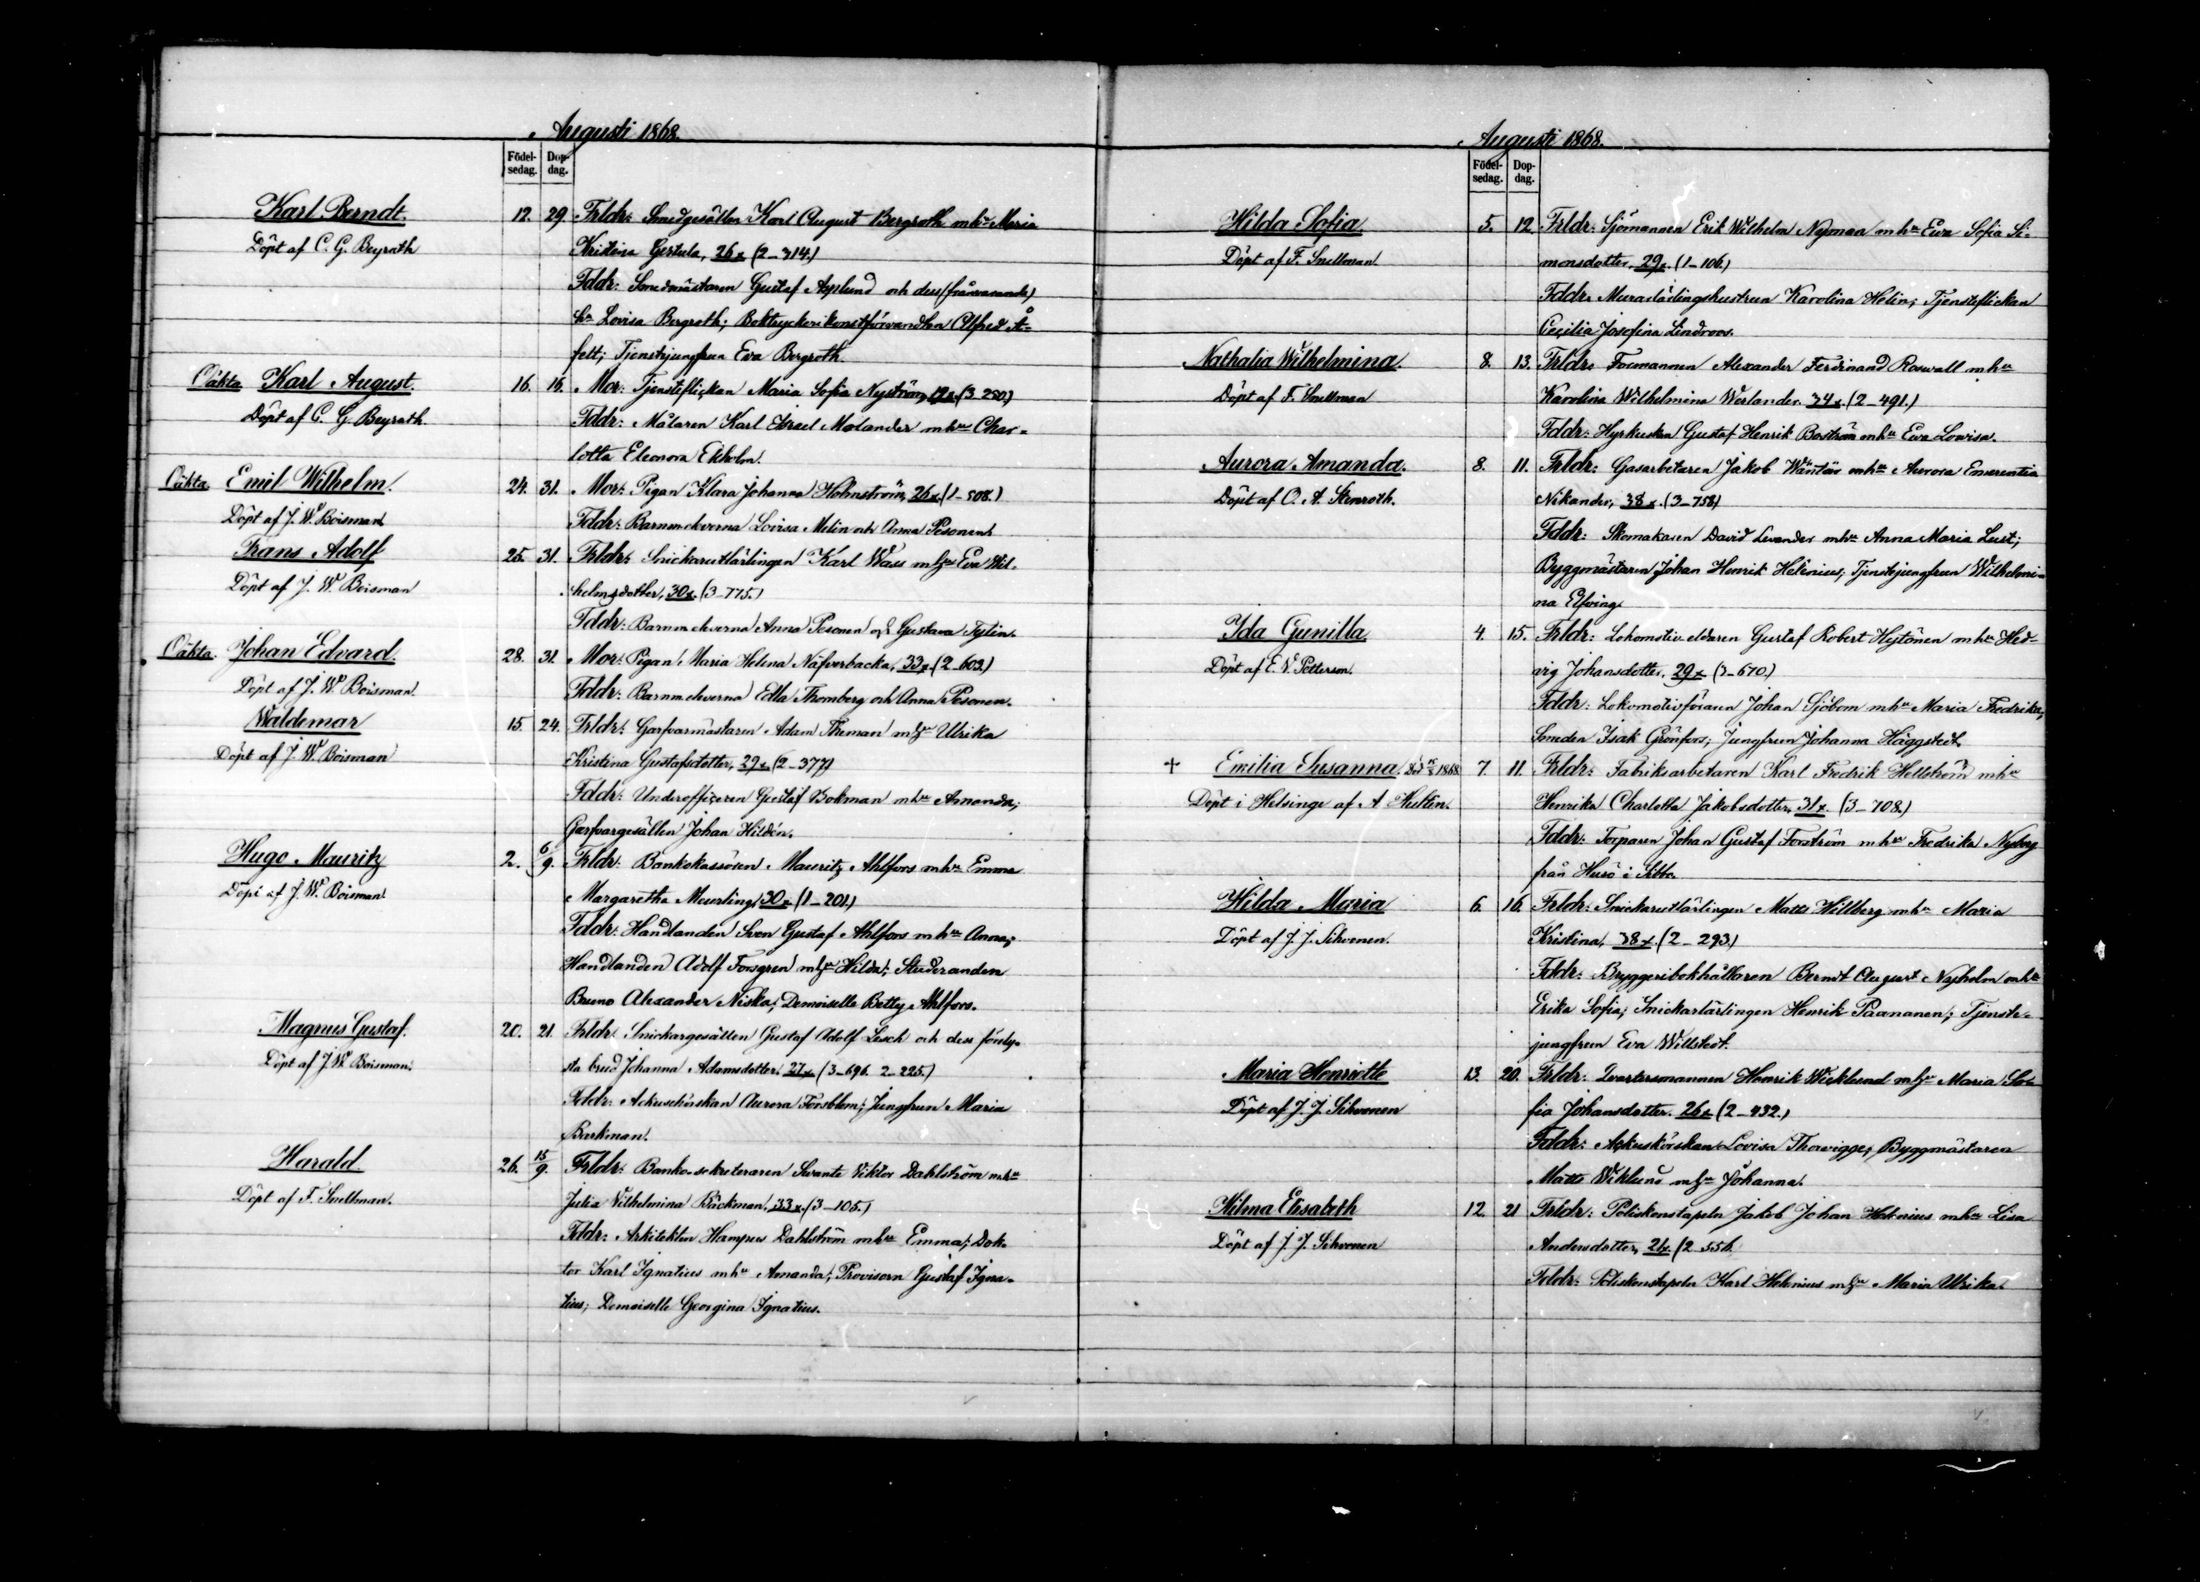 Augusti 1868.
Födel-
sedag.
Dop-
dag.
Karl Berndt.
Döpt af C. G. Beyrath
12. 29. Frldr: Smedgesällen Karl August Bergroth mhu Maria
Kristina Gestula, 26 x (2_314.)
Fddr: Smedmästaren Gustaf Asplund och dess (frånvarande)
hu Lovisa Bergroth; Boktryckerikonstförvandten Alfred Å-
felt; Tjenstejungfrun Eva Bergroth.
Oäkta Karl August.
Döpt af C. G. Beyrath.
16. 16. Mor: Tjensteflickan Maria Sofia Nyström, (3_250.)
Fddr: Målaren Karl Israel Molander mhu Char-
lotta Eleonora Ekholm.
Oäkta Emil Wilhelm.
Döpt af J. W. Boisman
24. 31. Mor: Pigan Klara Johanna Holmström, 26 x (1_508.)
Fddr: Barnmorskorna Lovisa Melin och Anna Pesonen.
Frans Adolf
Döpt af J. W. Boisman
25. 31. Frldr: Snickareutlärlingen Karl Wass mhu Eva Wil-
helmsdotter, 30 x. (3_775.)
Fddr: Anna Pesonen och Gustava Tylin.
Oäkta. Johan Edvard.
Döpt af J. W. Boisman.
28. 31. Mor: Pigan Maria Helena Näfverbacka, 33 x (2_603.)
Fddr: Edla Thomberg och Anna Pesonen.
Waldemar
Döpt af J. W. Boisman
15. 24. Frldr: Garfvarmästaren Adam Theman mhu Ulrika
Kristina Gustafsdotter, 29 x (2_377)
Fddr: Underofficeren Gustaf Bokman mhu Amanda;
Garfvargesällen Johan Hildén.
Hugo Mauritz
Döpt af J. W. Boisman
2. 6/9. Frldr: Bankokassören Mauritz Ahlfors mhu Emma
Margaretha Meurling, 30 x (1_201.)
Fddr: Handlanden Sven Gustaf Ahlfors mhu Anna;
Handlanden Adolf Forsgren mhu Hilda; Studeranden
Bruno Alexander Niska; Demoiselle Betty Ahlfors.
Magnus Gustaf.
Döpt af J. W. Boisman.
20. 21. Frldr: Snickargesällen Gustaf Adolf Lesch och dess förlof-
sta brud Johanna Adamsdotter. 27 x (3_696. 2_225.)
Fddr: Ackuschörskan Aurora Forsblom; Jungfrun Maria
Barkman.
Harald.
Döpt af F. Snellman.
26. 15/9. Frldr: Banko-sekreteraren Svante Viktor Dahlström mhu
Julia Vilhelmina Bäckman. 33 x (3_105.)
Fddr: Arkitekten Hampus Dahlström mhu Emma; Dok-
tor Karl Ignatius mhu Amanda; Provisorn Gustaf Igna-
tius; Demoiselle Georgina Ignatius.
Augusti 1868.
Födel-
sedag.
Dop-
dag.
Hilda Sofia.
Döpt af F. Snellman.
5. 12. Frldr: Sjömannen Erik Wilhelm Nyman mhu Eva Sofia Si-
monsdotter, 29 x. (1_106.)
Fddr: Murarlärlingshustrun Karolina Helin; Tjensteflickan
Cecilia Josefina Lindroos.
Nathalia Wilhelmina.
Döpt af F. Snellman
8. 13. Frldr: Formannen Alexander Ferdinand Roswall mhu
Karolina Wilhelmina Werlander. 34 x. (2_491.)
Fddr: Hyrkusken Gustaf Henrik Boström mhu Eva Lovisa.
Aurora Amanda.
Döpt af O. A. Stenroth.
8. 11. Frldr: Gasarbetaren Jakob Wäntär mhu Aurora Emerentia
Nikander, 38 x. (3_758)
Fddr: Skomakaren David Levander mhu Anna Maria Lust;
Byggmästaren Johan Henrik Helenius; Tjenstejungfrun Wilhelmi-
na Elfving.
Ida Gunilla
Döpt af E. V. Petterson.
4. 15. Frldr: Lokomotiv-eldaren Gustaf Robert Hytönen mhu Hed-
vig Johansdotter, 29 x (3_670.)
Fddr: Lokomotivföraren Johan Sjöbom mhu Maria Fredrika;
Smeden Isak Grönfors; Jungfrun Johanna Häggstedt.
+ Emilia Susanna. 1868
Döpt i Helsinge af A
7. 11. Frldr: Fabriksarbetaren Karl Fredrik Hellström mhu
Henrika Charlotta Jakobsdotter, 31 x. (3_708.)
Fddr: Torparen Johan Gustaf Forström mhu Fredrika Nyberg
från Husö i Sibbo.
Hilda Maria
Döpt af J. J. Sihvonen.
6. 16. Frldr: Snickareutlärlingen Matts Hillberg mhu Maria
Kristina, 38 x. (2_293.)
Fddr: Bryggeribokhållaren Berndt August Nyholm mhu
Erika Sofia; Snickarlärlingen Henrik Paananen; Tjenste-
jungfrun Eva Willstedt.
Maria Henriette
Döpt af J. J. Sihvonen
13. 20. Frldr: Qvartersmannen Henrik Wicklund mhu Maria So-
fia Johansdotter. 26 x (2_432.)
Fddr: Ackuskörskan Lovisa Thorvigge; Byggmästaren
Matts Wiklund mhu Johanna.
Wilma Elisabeth
Döpt af J. J. Sihvonen
12. 21 Frldr: Poliskonstapeln Jakob Johan Helenius mhu Lisa
Andersdotter, (2_556.
Fddr: Poliskonstapeln Karl Helenius mhu Maria Ulrika.